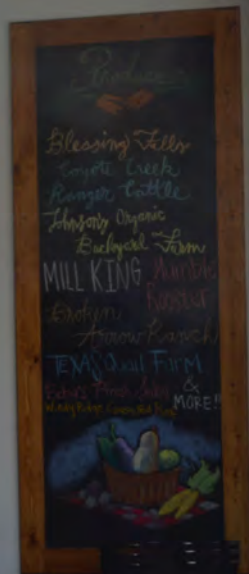 Produce
Blessing Falls
Coyote Creek
Ranger Cattle
Johnson's Organic
Backyard Farm
MILL KING Humble
Rooster
Broken
Arrow Ranch
TEXAS Quail FARM
&
MORE!!